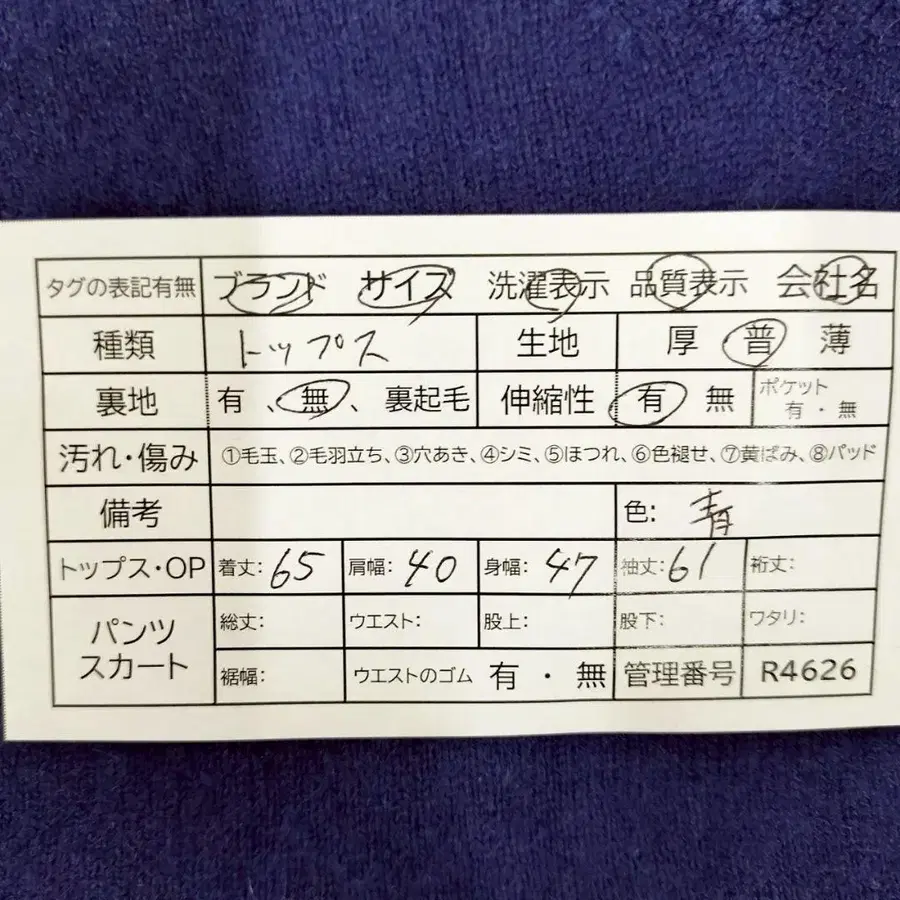 タグの表記有無 ブランド サイズ 洗濯表示 品質表示 会社名
種類 トップス 生地 厚 普 薄
裏地 有、無、裏起毛 伸縮性 有 無 ポケット 有・無
汚れ・傷み ①毛玉、②毛羽立ち、③穴あき、④シミ、⑤ほつれ、⑥色褪せ、⑦黄ばみ、⑧パッド
備考 色: 青
トップス・OP 着丈: 65 肩幅: 40 身幅: 47 袖丈: 61 裄丈:
パンツ スカート 総丈: ウエスト: 股上: 股下: ワタリ:
裾幅: ウエストのゴム 有・無 管理番号 R4626